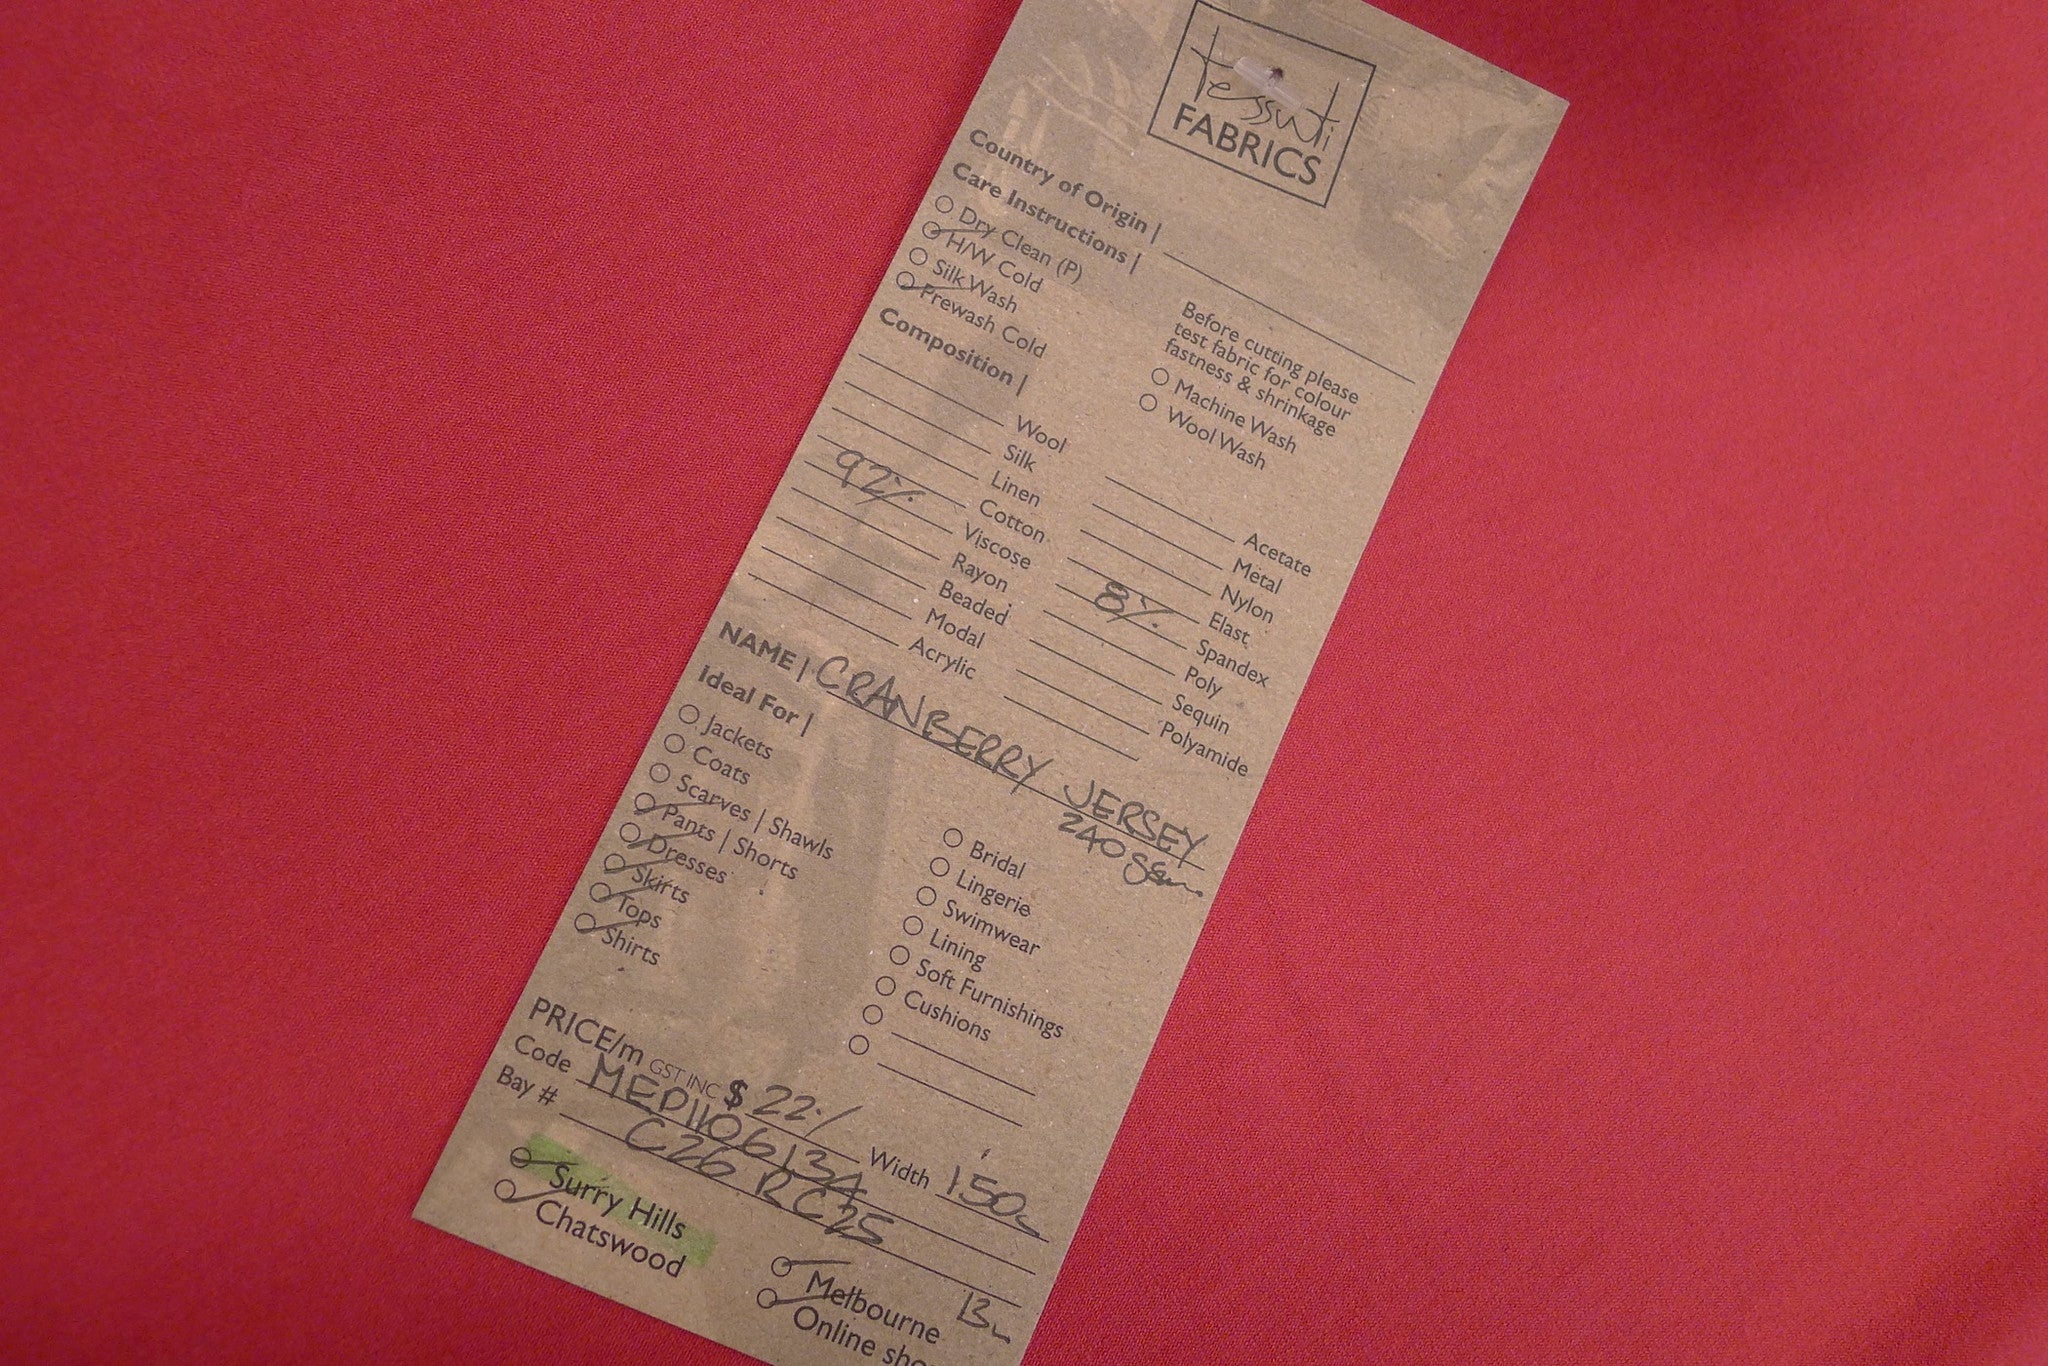 tessuti
FABRICS
Country of Origin |
Care Instructions |
Dry Clean (P)
H/W Cold
Silk Wash
Prewash Cold
Before cutting please
test fabric for colour
fastness & shrinkage
Machine Wash
Wool Wash
Composition |
Wool
Silk
Linen
Cotton
92% Viscose
Rayon
Beaded
Modal
Acrylic
Acetate
Metal
Nylon
Elast
8% Spandex
Poly
Sequin
Polyamide
NAME | CRANBERRY JERSEY
240gsm
Ideal For |
Jackets
Coats
Scarves | Shawls
Pants | Shorts
Dresses
Skirts
Tops
Shirts
Bridal
Lingerie
Swimwear
Lining
Soft Furnishings
Cushions
PRICE/m GST INC $ 22.- Width 150
Code MED110613A
Bay # C26 RC25
Surry Hills
Chatswood
Melbourne
Online